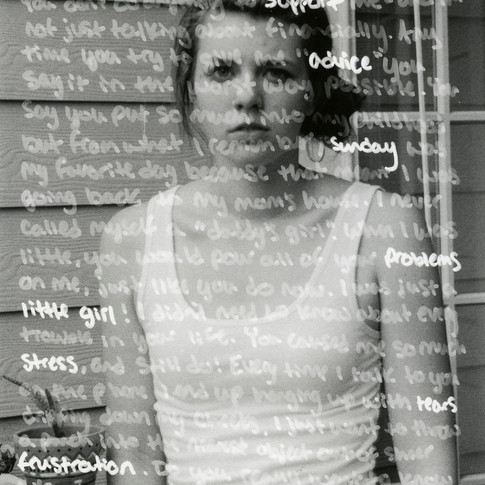 you don't support me
not just talking about financially. Any
time you try to give me "advice" you
say it in the worst way possible. You
say you put so much into my childhood
but from what I remember sunday was
my favorite day because that I was
going back to my mom's house. I never
called myself a "daddy's girl" when I was
little, you would pour all of your problems
on me, just like you do now. I was just a
little girl! I didn't need to know about
troubles in your life. You caused me so much
stress, and still do! Every time I talk to you
on the phone I end up hanging up with tears
down my I just want to throw
a punch into the nearest object out of sheer
frustration. Do you